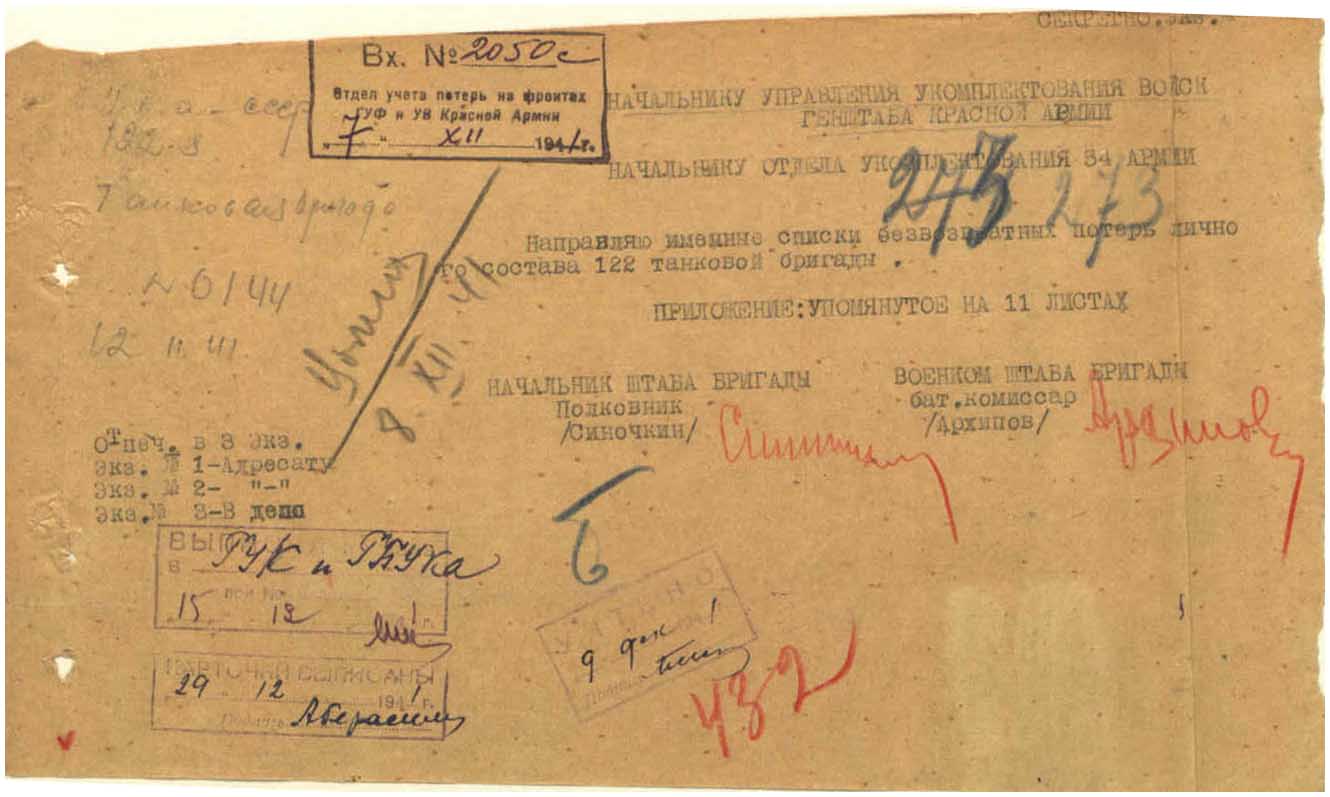 СЕКРЕТНО.ЭКЗ.
Вх. № 2050с
Отдел учета потерь на фронтах
ГУФ и УВ Красной Армии
"7" XII 1941г.
НАЧАЛЬНИКУ УПРАВЛЕНИЯ УКОМПЛЕКТОВАНИЯ ВОЙСК
ГЕНШТАБА КРАСНОЙ АРМИИ
НАЧАЛЬНИКУ ОТДЕЛА УКОМПЛЕКТОВАНИЯ 34 АРМИИ
273
Танковая бригада
Направляю именные списки безвозвратных потерь лично
го состава 122 танковой бригады .
№ 0144
12 11 41
8 XII. 41
ПРИЛОЖЕНИЕ:УПОМЯНУТОЕ НА 11 ЛИСТАХ
НАЧАЛЬНИК ШТАБА БРИГАДЫ
Полковник
/Синочкин/
ВОЕНКОМ ШТАБА БРИГАДЫ
бат.комиссар
/Архипов/
Отпеч. в 3 экз.
Экз. № 1-Адресату
Экз. № 2- "-"
Экз.№ 3-В дело
в ГУК и ГБУКа
15 12
КАРТОЧКИ ВЫПИСАНЫ
29 12 1941г.
Подпись
УЧТЕНО
9 дек 1
Подпись
432